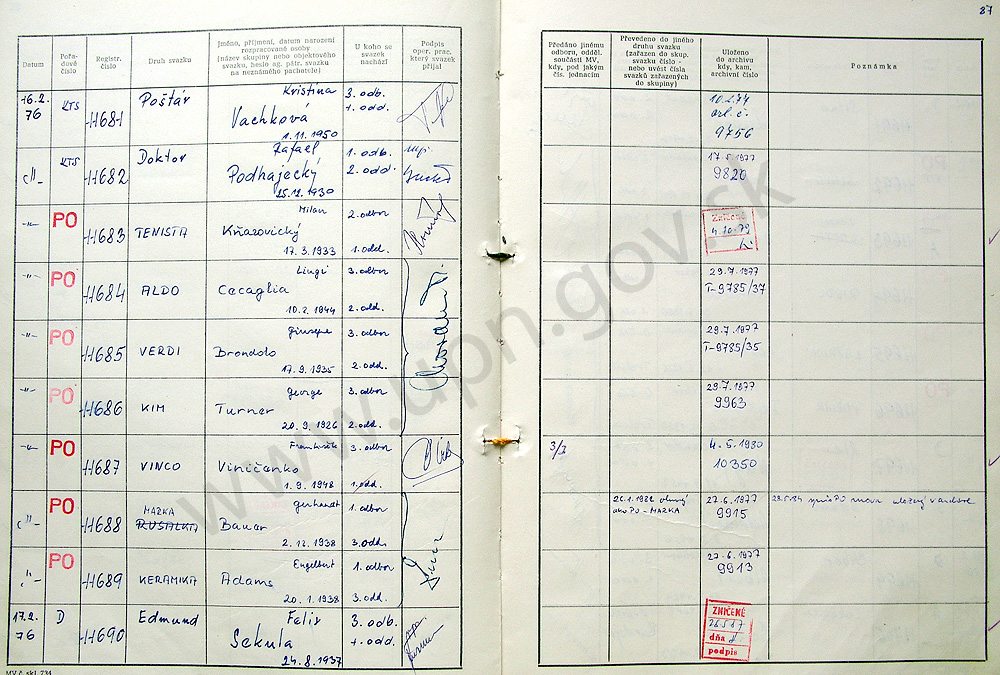 87
Datum
Pořadové číslo
Registr. číslo
Druh svazku
Jméno, příjmení, datum narození rozpracované osoby (název skupiny nebo objektového svazku, heslo ag. pátr. svazku na neznámého pachatele)
U koho se svazek nachází
Podpis oper. prac. který svazek přijal
Předáno jinému odboru, odděl. součásti MV, kdy, pod jakým čís. jednacím
Převedeno do jiného druhu svazku (zařazen do skup. svazku číslo - nebo uvést čísla svazků zařazených do skupiny)
Uloženo do archivu kdy, kam, archivní číslo
Poznámka
16.2. 76 KTS 11681 Poštár Kristina 3. odb.
Vachková 1. odd.
1.11.1950
10.1.77
9756
-"- KTS 11682 Doktor Rafael 1. odb.
Podhajecký 2. odd.
25.12.1930
17.5.1977
9820
-"- PO 11683 TENISTA Milan 2. odbor
Kňazovický
17.3.1933 1. odd.
Zničené
4.10.79
-"- PO 11684 ALDO Luigi 3. odbor
Cacaglia
10.2.1944 2. odd.
29.7.1977
T-9785/37
-"- PO 11685 VERDI Giuseppe 3. odbor
Brondolo
17.9.1935 2. odd.
29.7.1977
T-9785/35
-"- PO 11686 KIM George 3. odbor
Turner
20.9.1926 2. odd.
29.7.1977
9963
-"- PO 11687 VINCO František 3. odbor
Viničanko
1.9.1948 1. odd.
3/2
4.5.1980
10350
-"- PO 11688 MAZKA Gerhardt 1. odbor
RUSALKA Bauer
2.12.1938 3. odd.
26.1.1982
ako PO - MAZKA
27.6.1977
9915
-"- PO 11689 KERAMIKA Engelbert 1. odbor
Adams
20.1.1938 3. odd.
27.6.1977
9913
17.2. 76 D 11690 Edmund Felix 3. odb.
Sekula 1. odd.
24.8.1937
ZNIČENÉ
dňa
podpis
MV č. skl. 734
www.upn.gov.sk